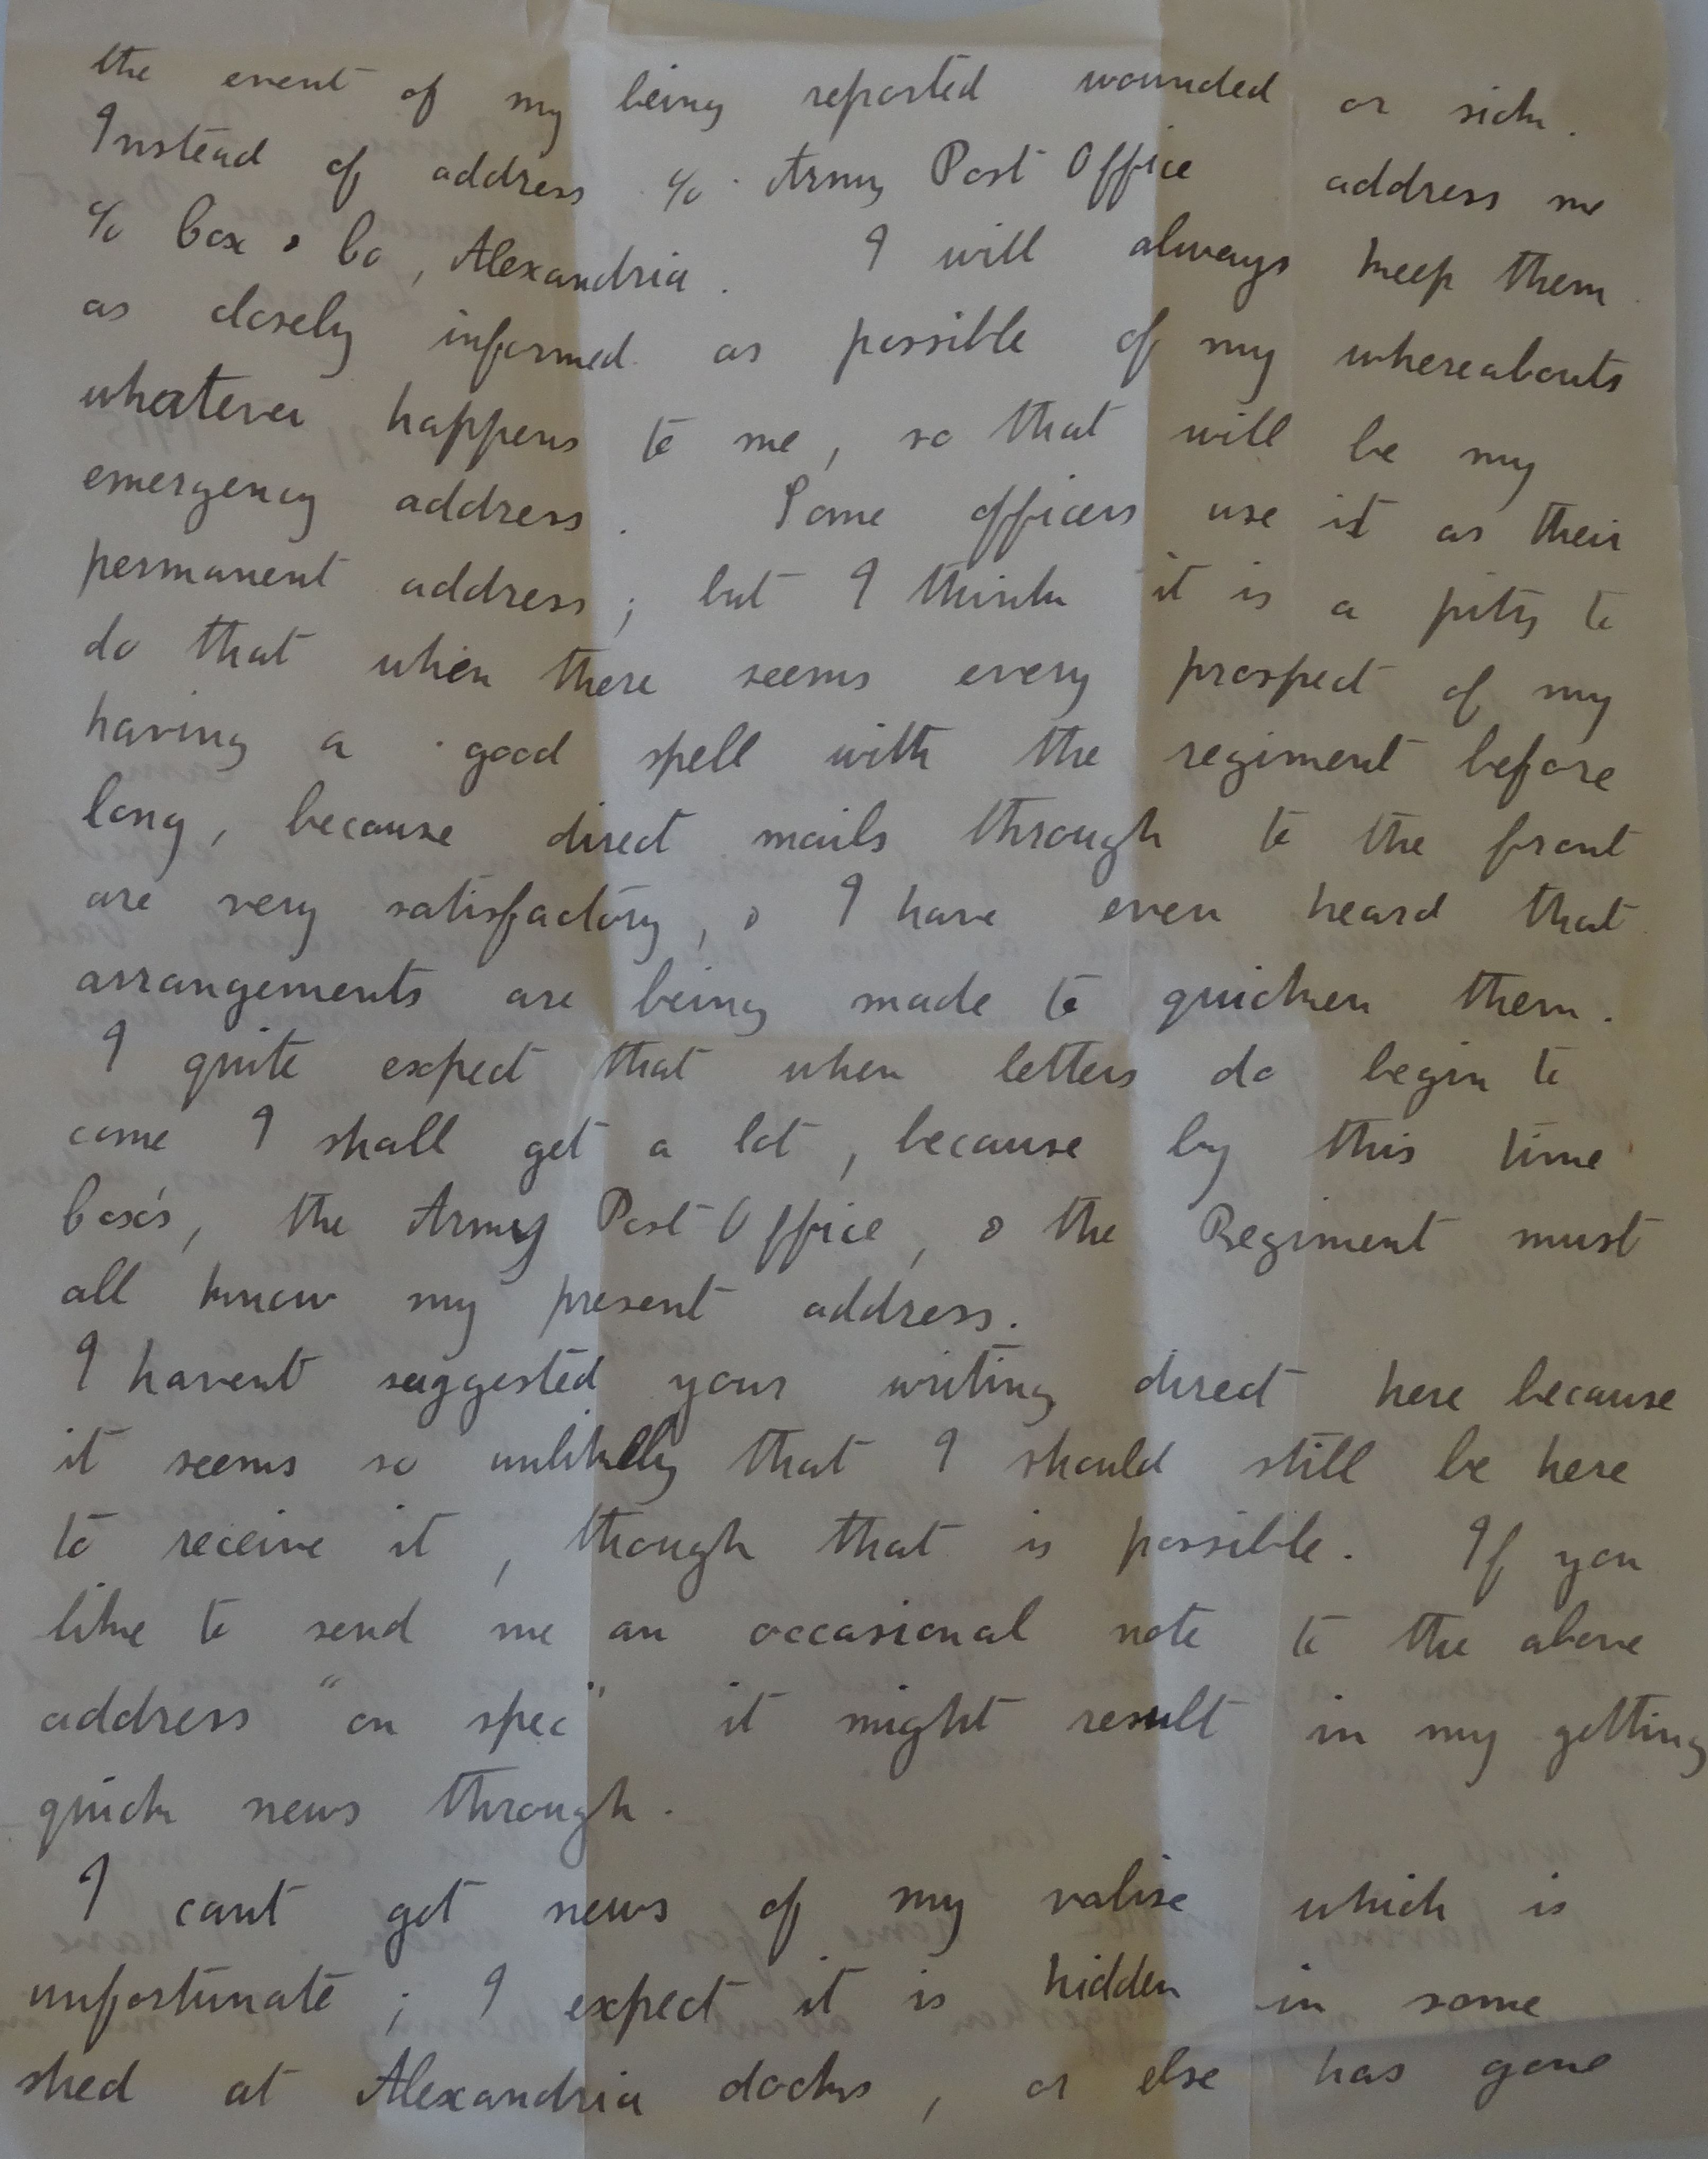 the event of my being reported wounded or sick.
Instead of address c/o Army Post Office address me
c/o Cox & Co, Alexandria. I will always keep them
as closely informed as possible of my whereabouts
whatever happens to me, so that will be my
emergency address. Some officers use it as their
permanent address; but I think it is a pity to
do that when there seems every prospect of my
having a good spell with the regiment before
long, because direct mails through to the front
are very satisfactory, & I have even heard that
arrangements are being made to quicken them.
I quite expect that when letters do begin to
come I shall get a lot, because by this time
Cox's, the Army Post Office, & the Regiment must
all know my present address.
I havent suggested your writing direct here because
it seems so unlikely that I should still be here
to receive it, though that is possible. If you
like to send me an occasional note to the above
address "on spec" it might result in my getting
quick news through.
I cant get news of my valise which is
unfortunate; I expect it is hidden in some
shed at Alexandria docks, or else has gone